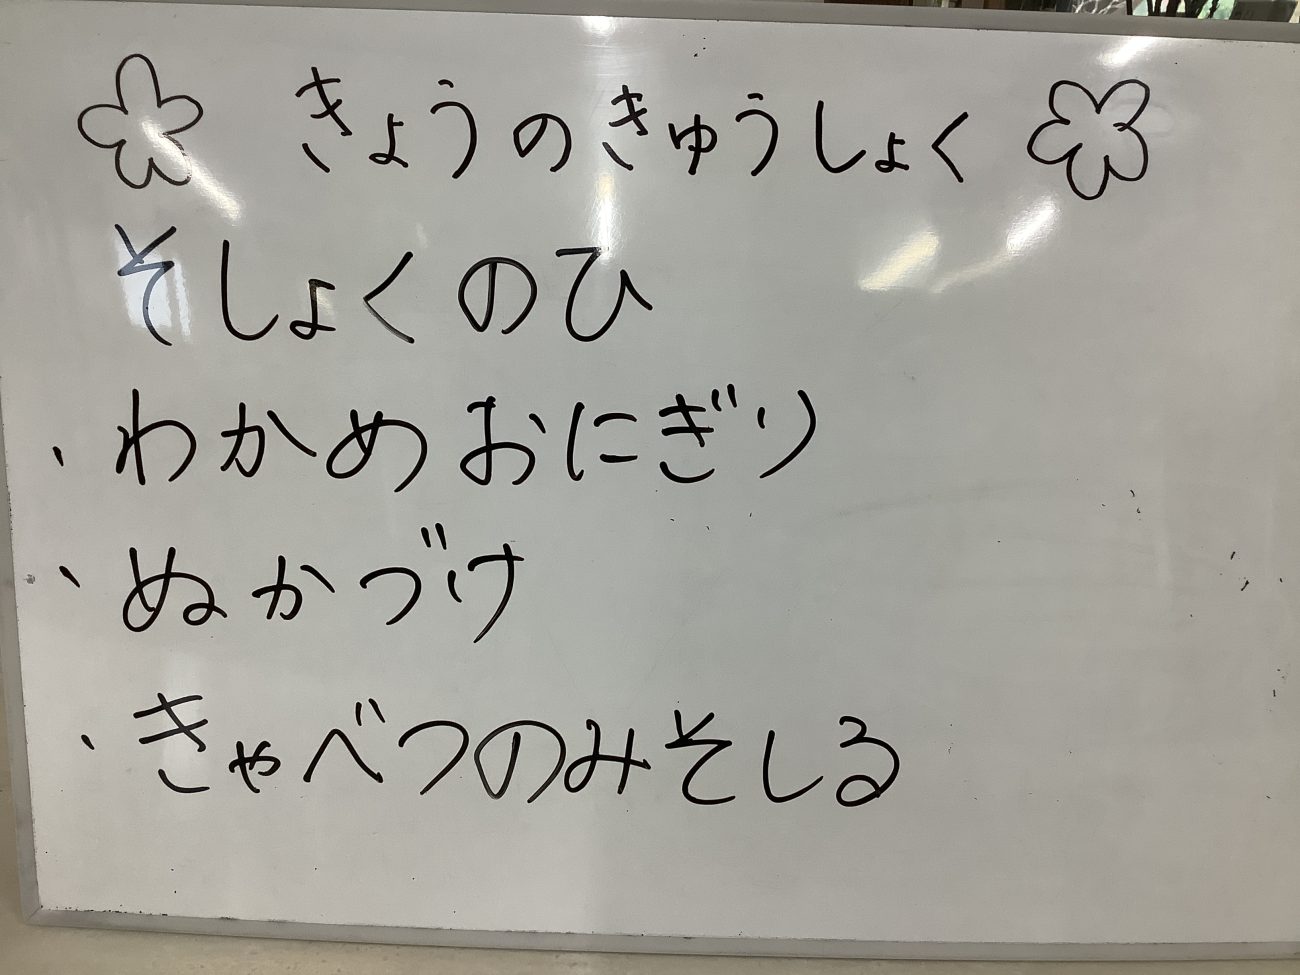 きょうのきゅうしょく
そしょくのひ
、わかめおにぎり
、ぬかづけ
、きゃべつのみそしる